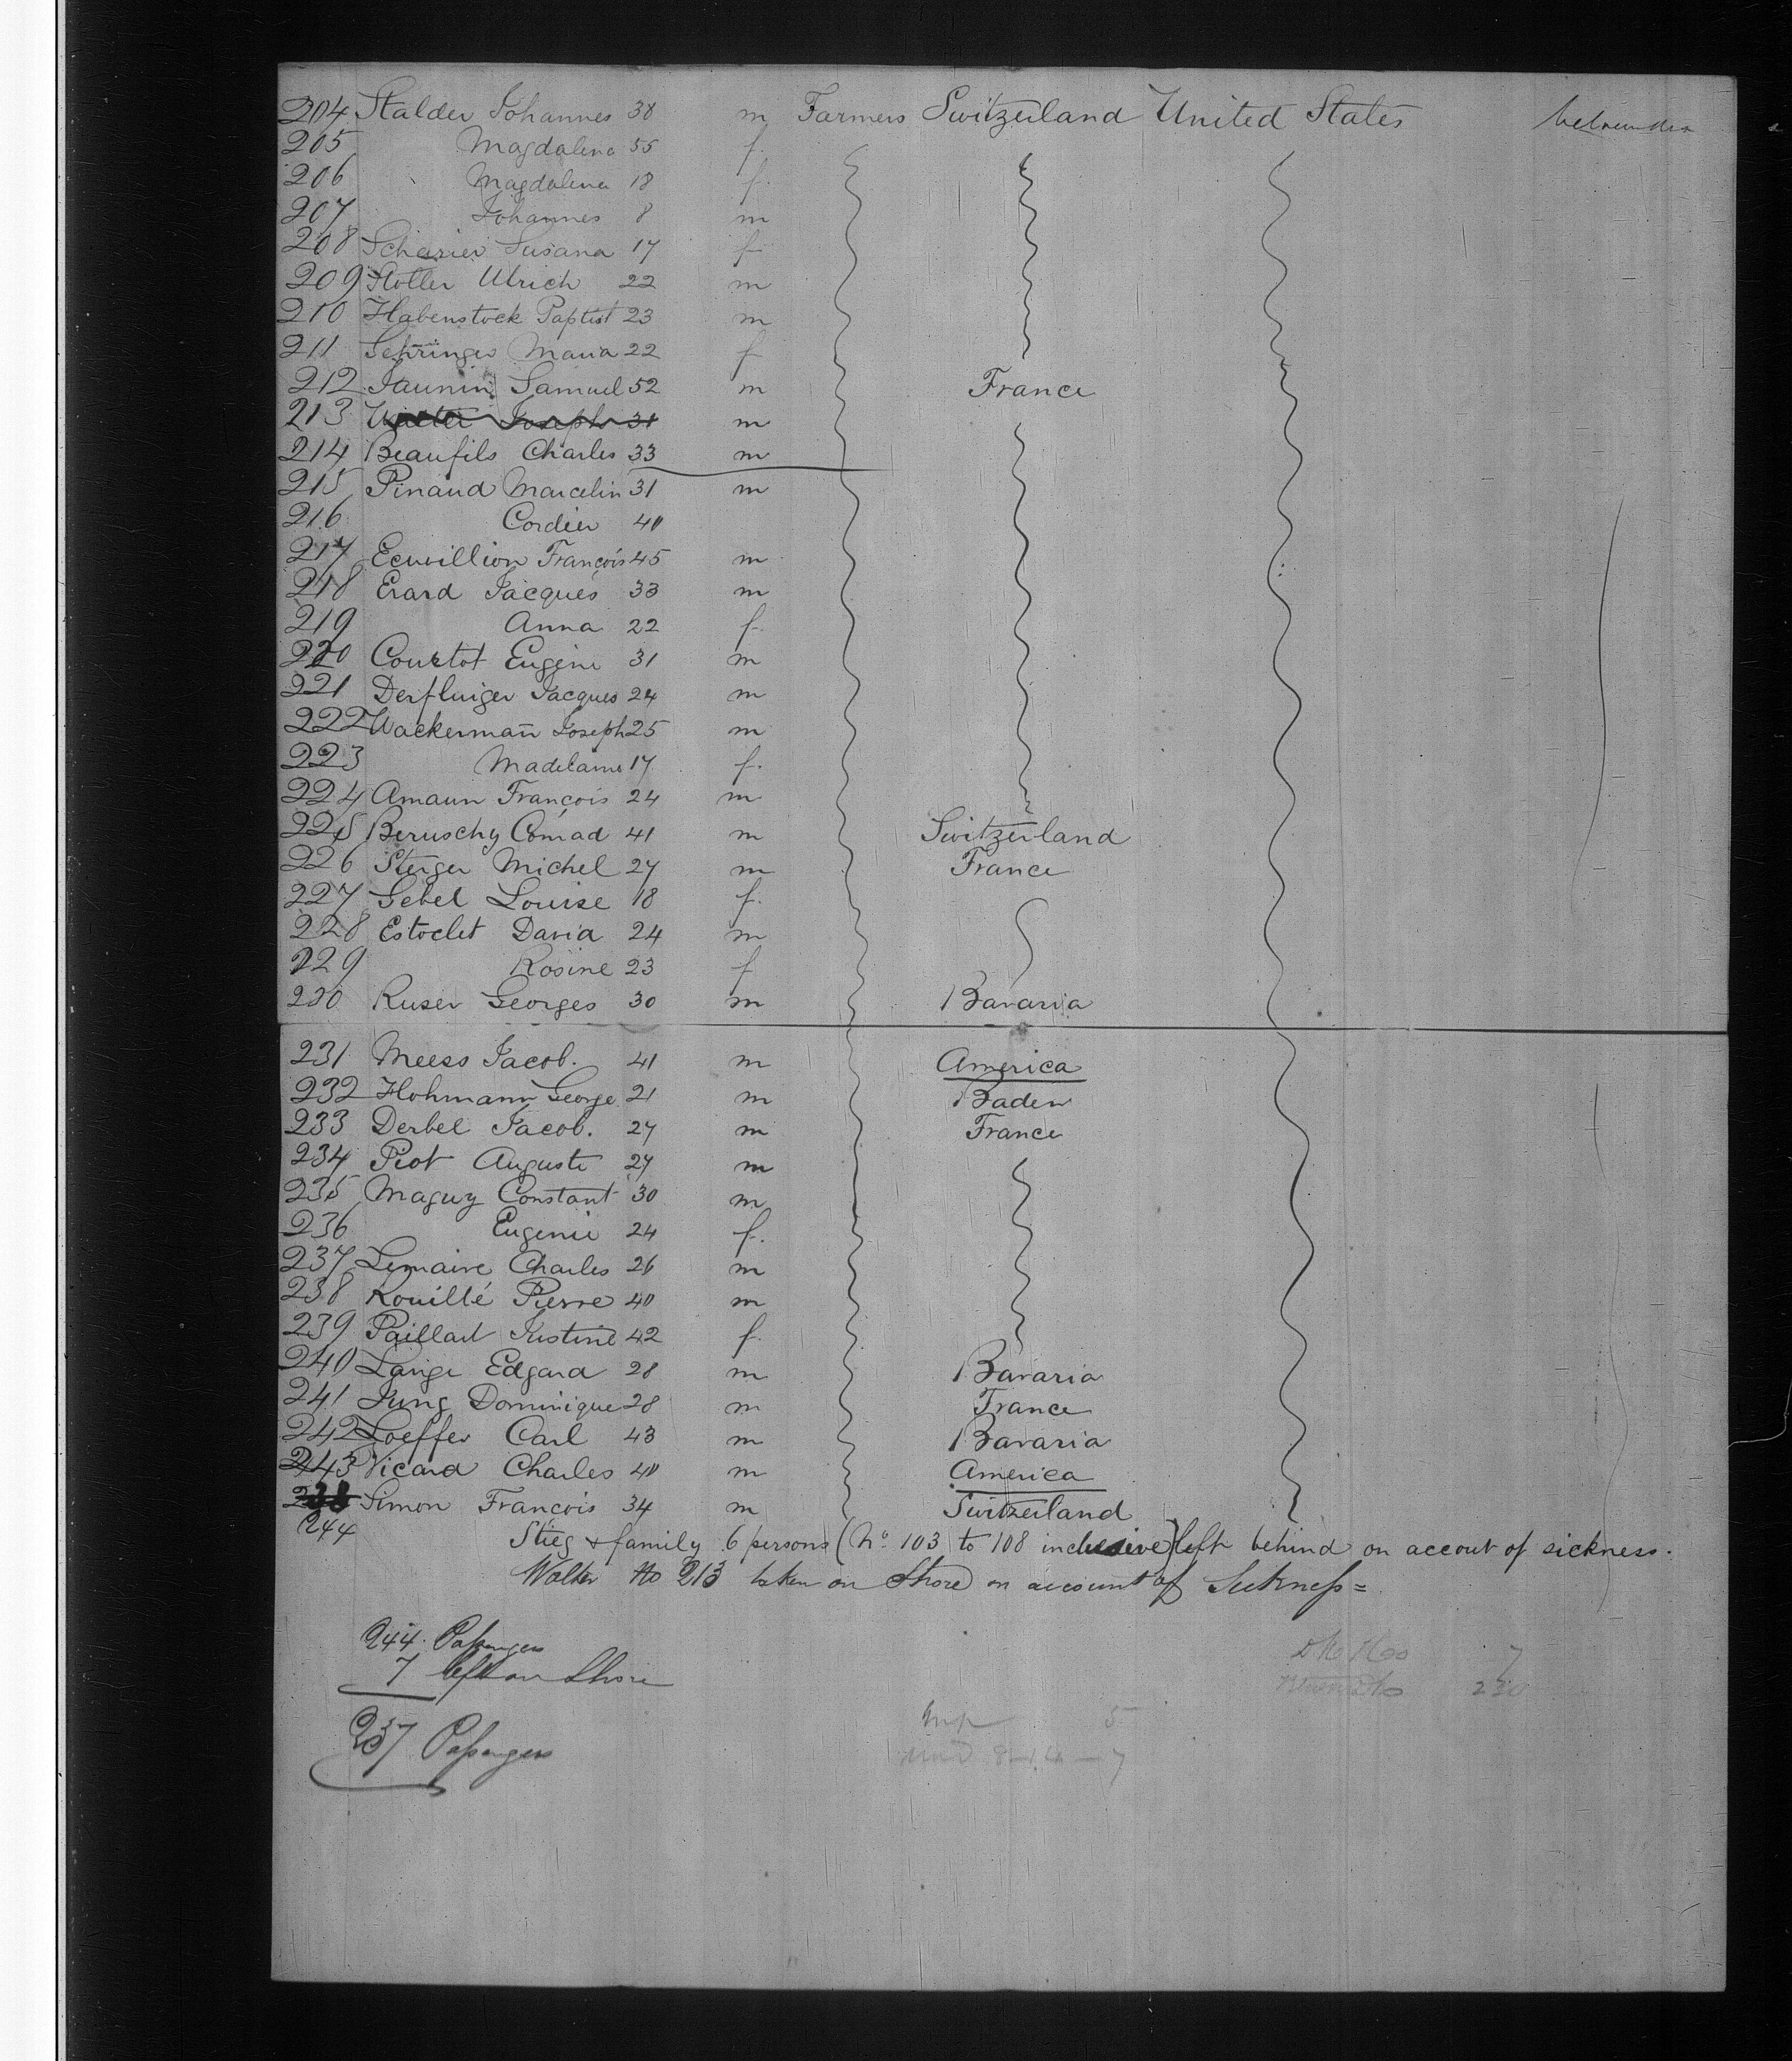 204 Stalder Johannes 38 m Farmers Switzerland United States
205 Magdalena 55 f.
206 Magdalena 18 f.
207 Johannes 8 m
208 Susana 17 f
209 Stoller Ulrich 22 m
210 Habenstock Baptist 23 m
211 Gehringer Maria 22 f
212 Jaunin Samuel 52 m France
213 Walter Joseph 31 m
214 Beaufils Charles 33 m
215 Pinaud Marcelin 31 m
216 Cordier 40
217 Ecuvillion François 45 m
218 Erard Jacques 33 m
219 Anna 22 f.
220 Courtot Eugène 31 m
221 Derfluiger Jacques 24 m
222 Wackermañ Joseph 25 m
223 Madelaine 17 f.
224 Amaun François 24 m
225 Beruschy Conrad 41 m Switzerland
226 Steiger Michel 27 m France
227 Gebel Louise 18 f.
228 Estoclet David 24 m
229 Rosine 23 f
230 Ruser Georges 30 m Bavaria
231 Meess Jacob. 41 m America
232 Hohmann George 21 m Baden
233 Derbel Jacob. 27 m France
234 Piot Auguste 27 m
235 Maguy Constant 30 m
236 Eugenie 24 f.
237 Lemaire Charles 26 m
238 Rouillé Pierre 40 m
239 Paillart Justine 42 f.
240 Lange Edgard 28 m Bavaria
241 Jung Dominique 28 m France
242 Loeffer Carl 43 m Bavaria
243 Vicard Charles 40 m America
238 Simon François 34 m Switzerland
244 Stieg & family 6 persons (No 103 to 108 inclusive) left behind on accout of sickness.
Walter No 213 taken on Shore on account of Sickness =
244. Passengers
7 left on Shore
237 Passengers
7
220
5
7